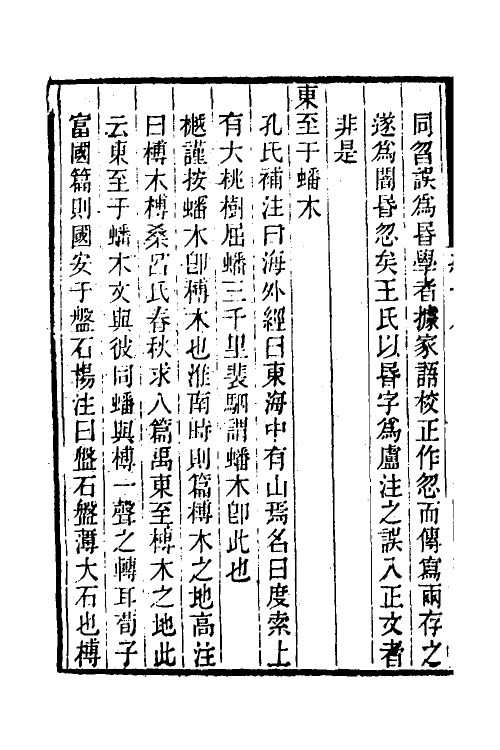 同曶誤爲昬學者據家語校正作忽而傳寫兩存之
遂爲闇昬忽矣王氏以昬字爲盧注之誤入正文者
非是
東至于蟠木
孔氏補注曰海外經曰東海中有山焉名曰度索上
有大桃樹屈蟠三千里裴駰謂蟠木卽此也
樾謹按蟠木卽榑木也淮南時則篇榑木之地高注
曰榑木榑桑呂氏春秋求人篇禹東至榑木之地此
云東至于蟠木文與彼同蟠與榑一聲之轉耳荀子
富國篇則國安于盤石楊注曰盤石盤薄大石也榑